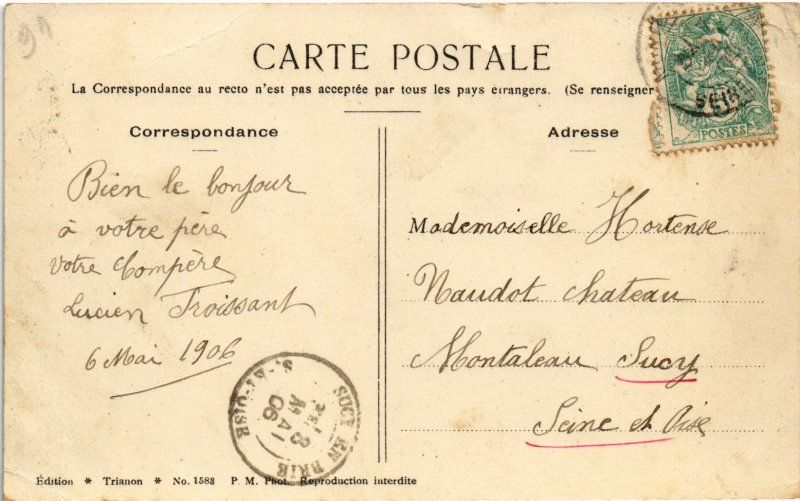 91
CARTE POSTALE
La Correspondance au recto n'est pas acceptée par tous les pays étrangers. (Se renseigner
Correspondance
Bien le bonjour
à votre père
votre Compère
Lucien Froissant
6 Mai 1906
Adresse
Mademoiselle Hortense
Naudot chateau
Montaleau Sucy
Seine et Oise
POSTES
SUCY EN BRIE
8
MAI
06
S.-ET-OISE
Édition * Trianon * No. 1583 P. M. Phot. Reproduction interdite